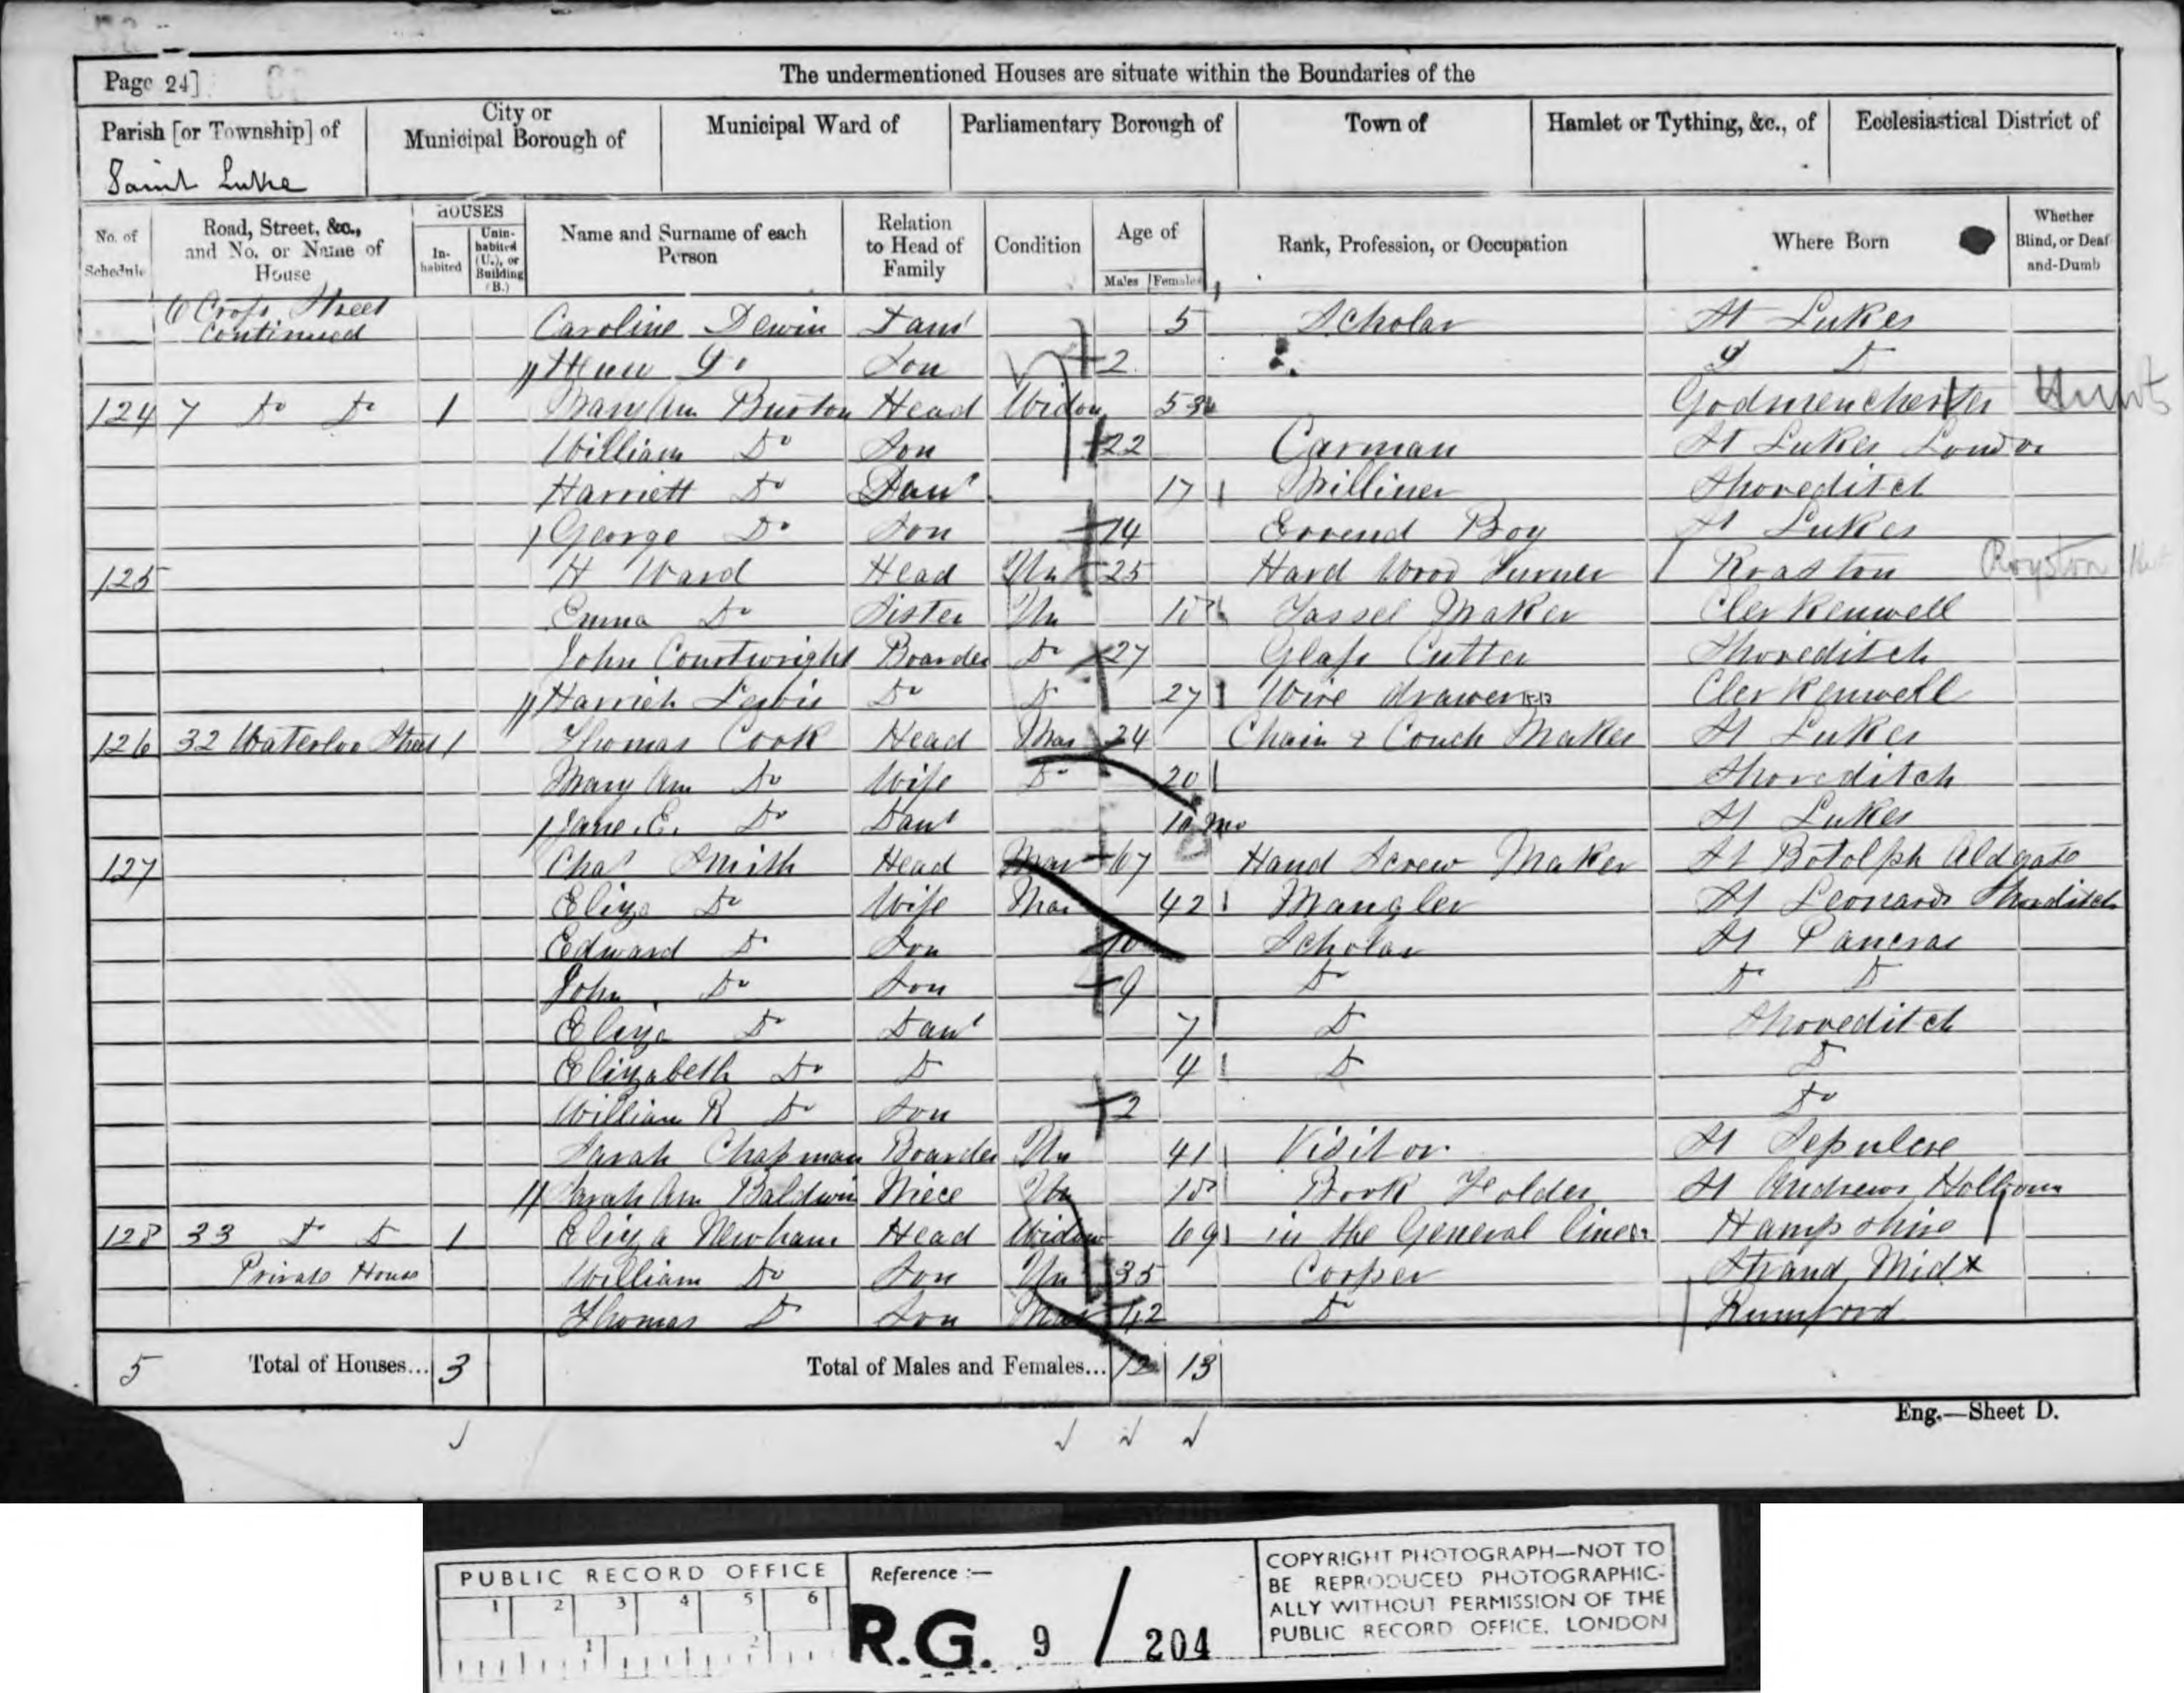 Page 24]
The undermentioned Houses are situate within the Boundaries of the
Parish [or Township] of
Saint Luke
City or Municipal Borough of
Municipal Ward of
Parliamentary Borough of
Town of
Hamlet or Tything, &c., of
Ecclesiastical District of
No. of Schedule
Road, Street, &c., and No. or Name of House
HOUSES
In-habited
Unin-habited (U.), or Building (B.)
Name and Surname of each Person
Relation to Head of Family
Condition
Age of
Males
Females
Rank, Profession, or Occupation
Where Born
Whether Blind, or Deaf-and-Dumb
6 Cross Street Continued Caroline Dewin Daur 5 Scholar St Lukes
Do Son 2 D D
124 7 Do Do 1 Mary Ann Burton Head Widow 53 Godmenchester Hunts
William Do Son 22 Carman St Lukes London
Harriett Do Daur 17 Milliner Shoreditch
George Do Son 14 Errend Boy St Lukes
125 H Ward Head Un 25 Hard Wood Turner Roaston Royston
Emma Do Sister Un 18 Tassel Maker Clerkenwell
John Courtwright Boarder Do 27 Glass Cutter Shoreditch
Do D 27 Wire drawer Clerkenwell
126 32 Waterloo Street 1 Thomas Cook Head Mar 24 Chair & Couch Maker St Lukes
Mary Ann Do Wife Do 20 Shoreditch
Jane. E. Do Daur 10 Mo St Lukes
127 Chas Smith Head Mar 67 Hand Screw Maker St Botolph Aldgate
Eliza Do Wife Mar 42 Mangler St Leonards Shorditch
Edward Do Son 10 Scholar St Pancras
John Do Son 9 Do D D
Eliza Do Daur 7 D Shoreditch
Elizabeth Do D 4 D D
William R Do Son 2 Do
Sarah Chapman Boarder Un 41 Visitor St Sepulcre
Sarah Ann Baldwin Niece Un 18 Book Folder St Andrews Holborn
128 33 D D 1 Eliza Newham Head Widow 69 in the General line Hampshire
Private House William Do Son Un 35 Cooper Strand Midx
Thomas D Son Mar 42 D Rumford
5 Total of Houses... 3 Total of Males and Females... 12 13
Eng.—Sheet D.
PUBLIC RECORD OFFICE
1 2 3 4 5 6
1 2
Reference :—
R.G. 9 / 204
COPYRIGHT PHOTOGRAPH—NOT TO
BE REPRODUCED PHOTOGRAPHIC-
ALLY WITHOUT PERMISSION OF THE
PUBLIC RECORD OFFICE, LONDON